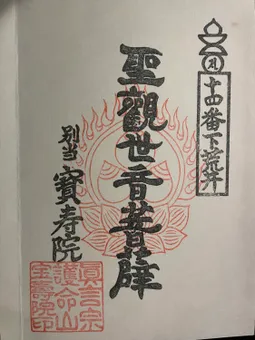 十四番下荒井
聖觀世音菩薩
別当 寶寿院
眞言宗
護命山
宝壽院印